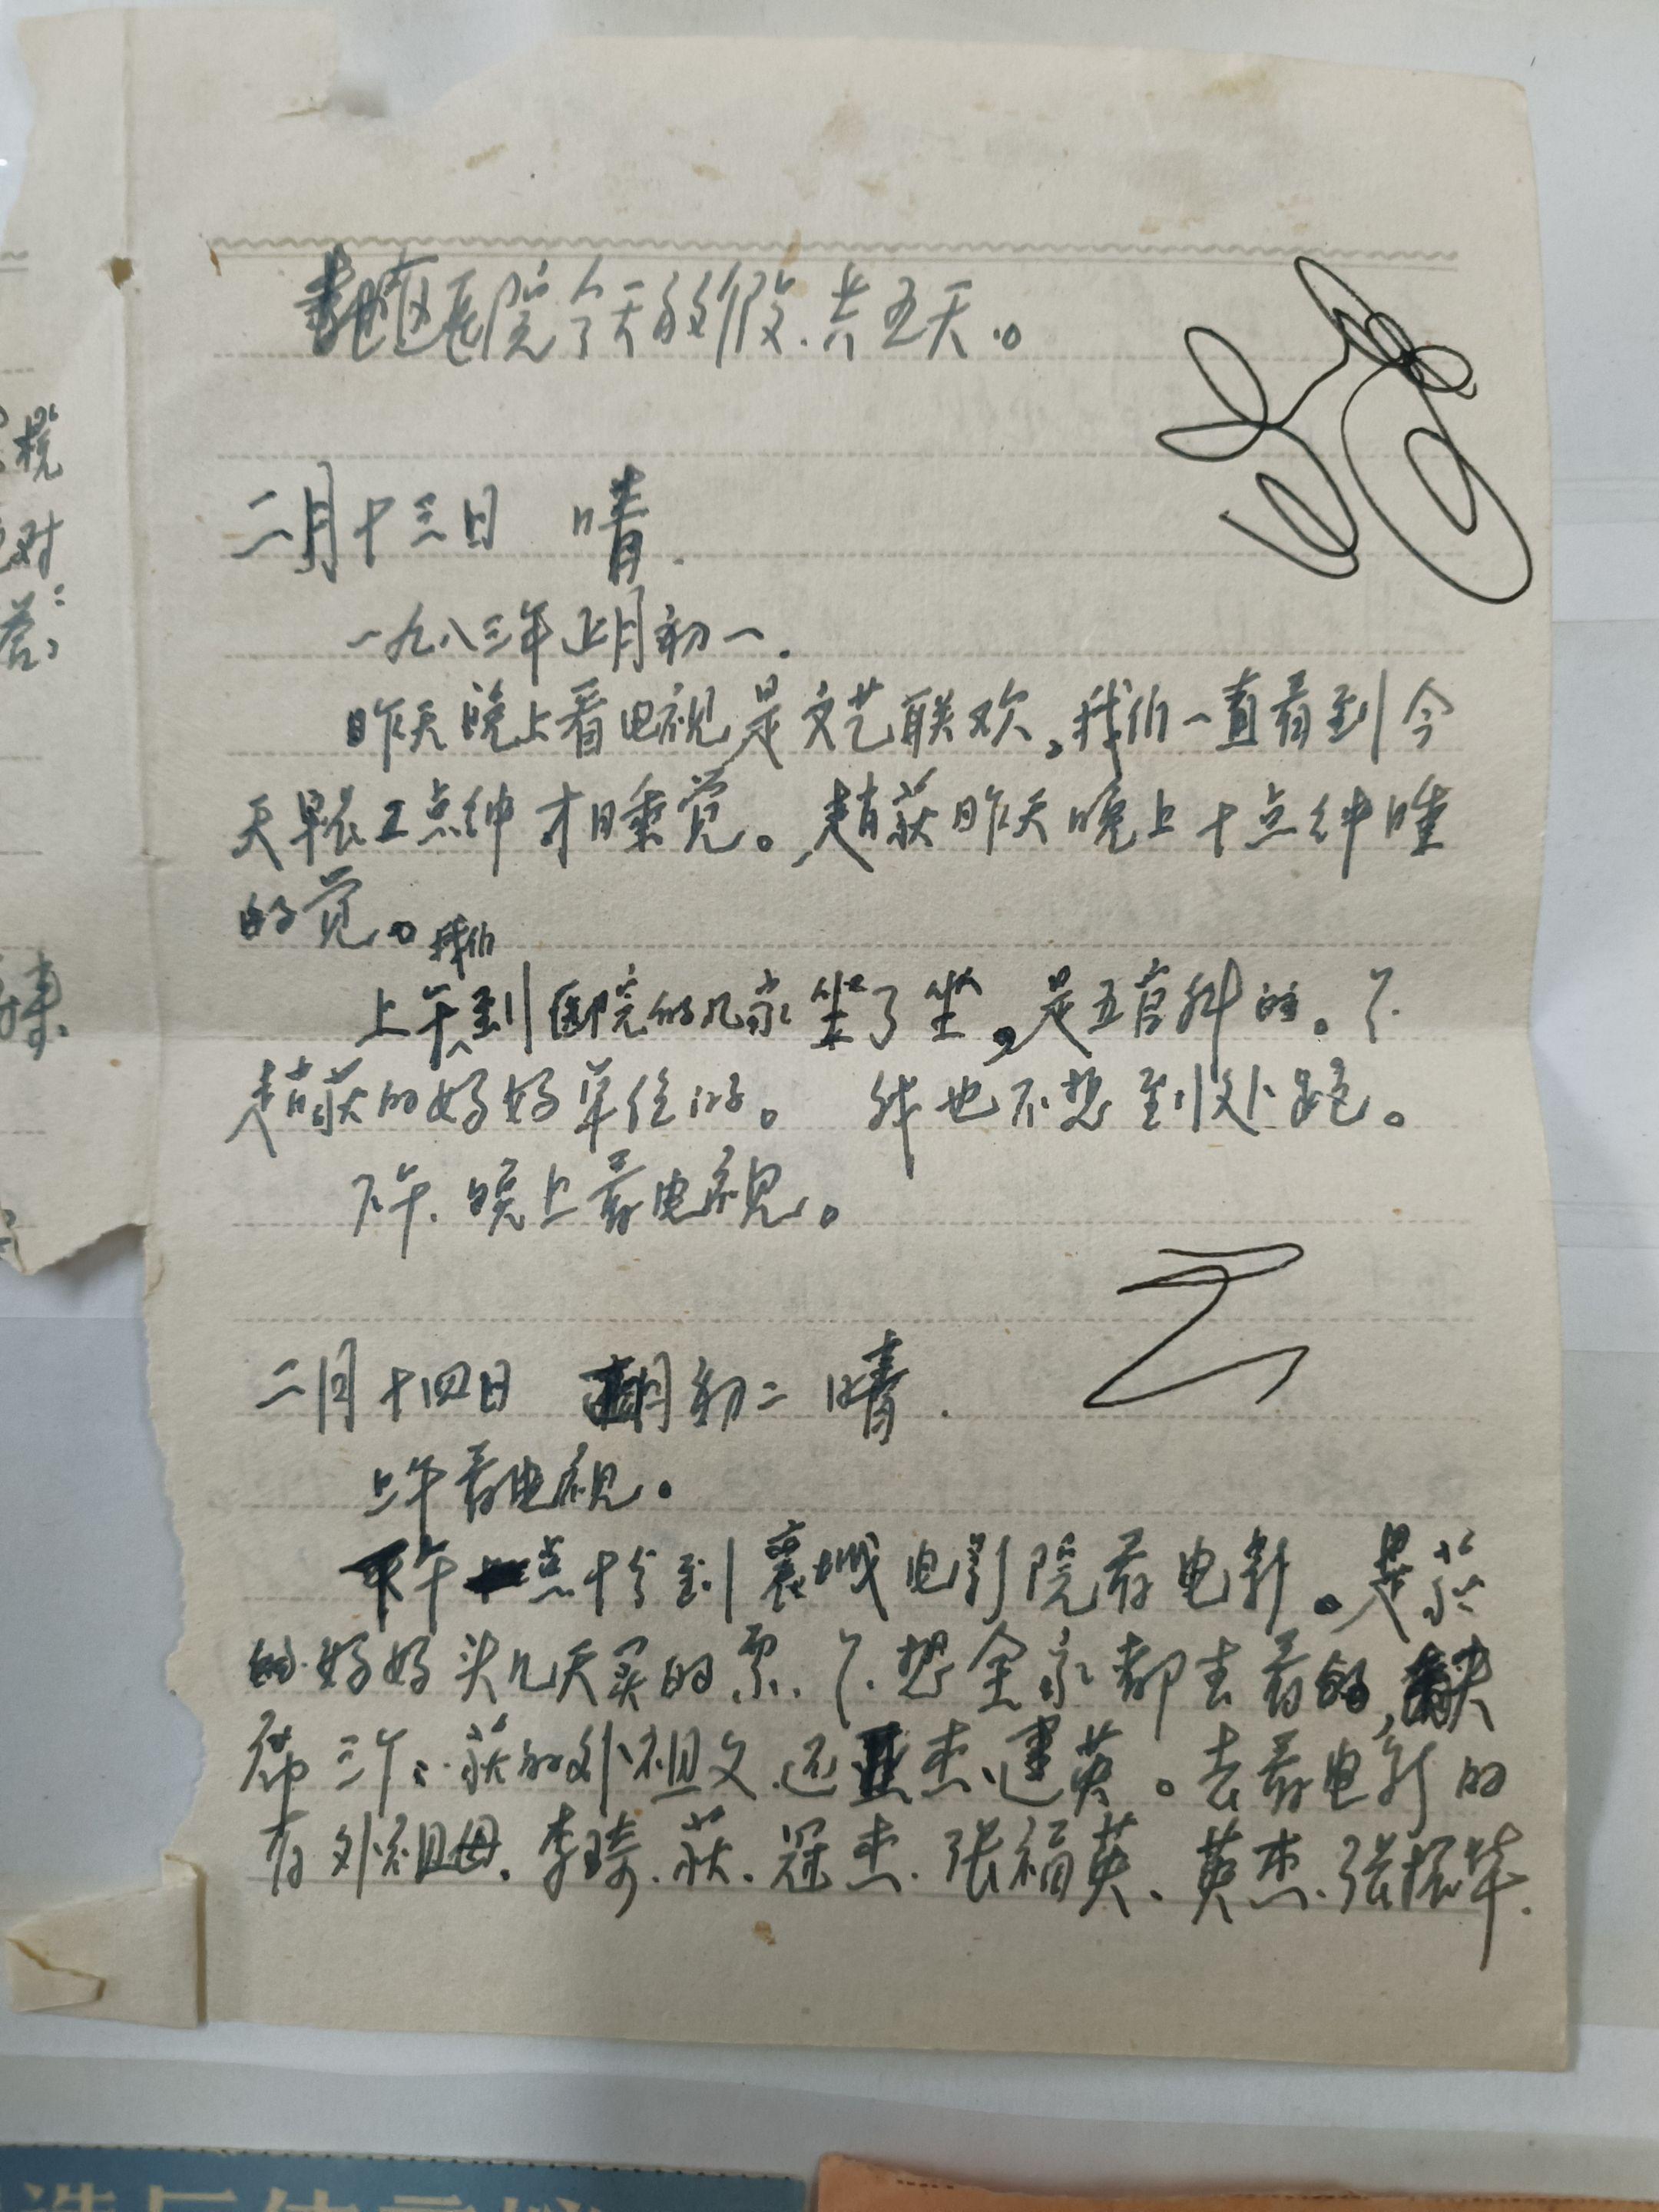 地区医院今天放假.共五天.。
二月十三日 晴.
一九八三年正月初一.
昨天晚上看电视是文艺联欢。我们一直看到今
天早晨 点钟才睡觉。赵荻昨天晚上十点钟睡
的觉。
我们
上午到医院的几家坐了坐。是五官科的。
赵荻的好好单位的。 我也不想到处跑。
下午.晚上看电视。
二月十四日 初二 晴.
上午看电视。
下午 点十分到襄城电影院看电影。是荻
的好好头几天买的票. 想全家都去看的,缺
席三个:荻的外祖父.还 杰、建英。去看电影的
有外祖母.李琦.荻.冠杰.张福英、英杰.张振华.
税
对
答:
造